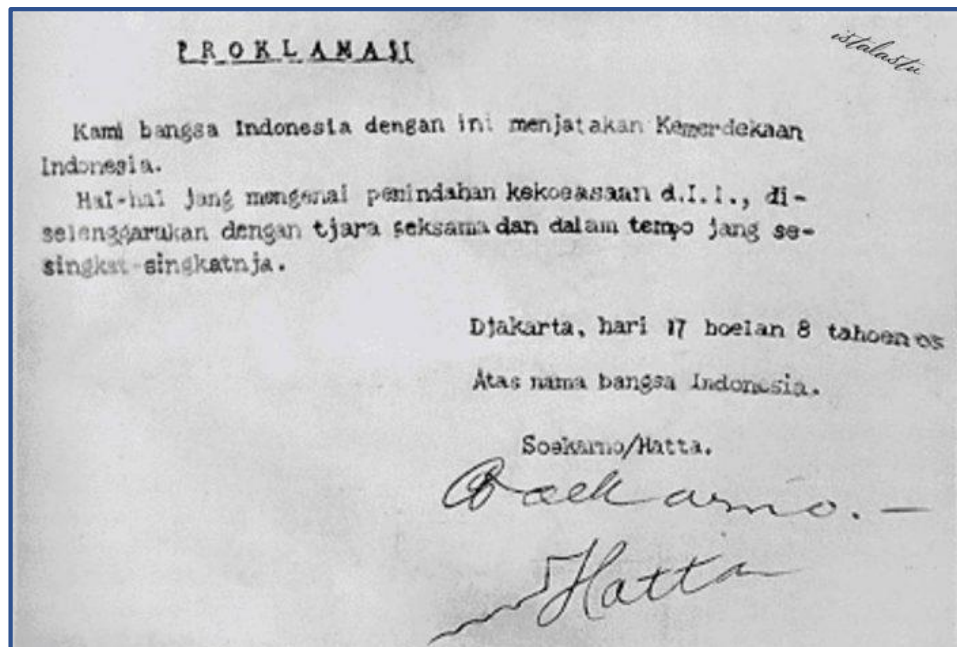 PROKLAMASI
istalastu
Kami bangsa Indonesia dengan ini menjatakan Kemerdekaan
Indonesia.
Hal-hal jang mengenai pemindahan kekoeasaan d.l.l., di-
selenggarakan dengan tjara seksama dan dalam tempo jang se-
singkat-singkatnja.
Djakarta, hari 17 boelan 8 tahoen 05
Atas nama bangsa Indonesia.
Soekarno/Hatta.
Soekarno.-
Hatta